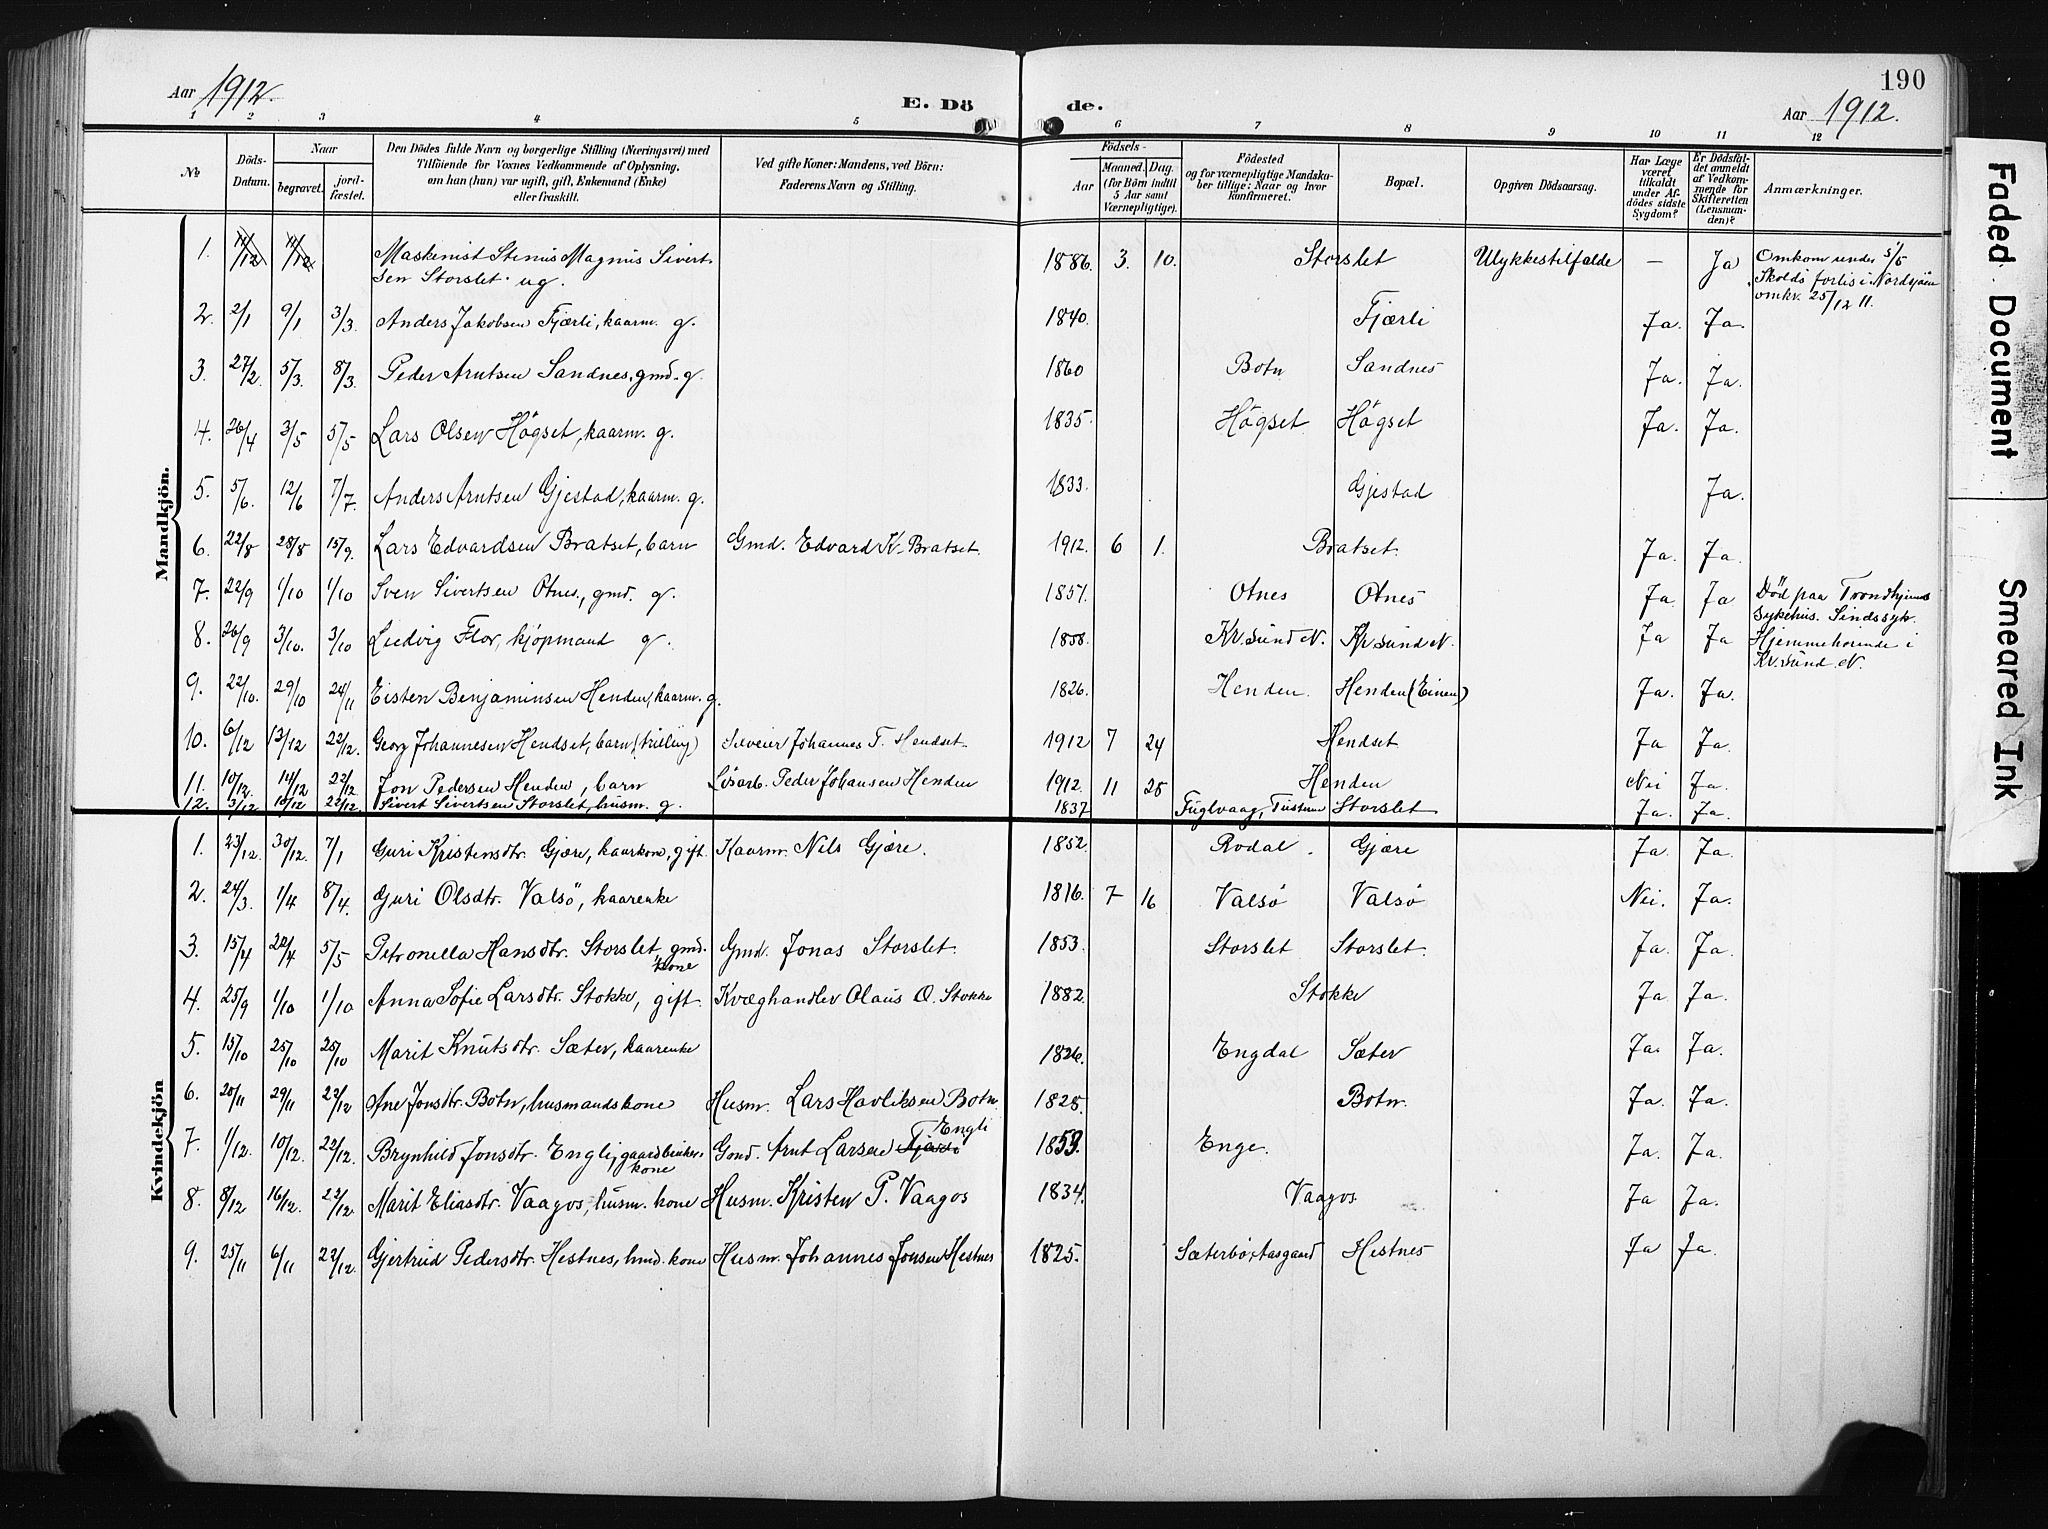 190
Aar 1912.
E. Dö de.
Aar 1912.
1 2 3 4 5 6 7 8 9 10 11 12
№
Döds-Datum.
Naar
begravet.
jord-fæstet.
Den Dödes fulde Navn og borgerlige Stilling (Næringsvei) med
Tilföiende for Voxnes Vedkommende af Oplysning,
om han (hun) var ugift, gift, Enkemand (Enke)
eller fraskilt.
Ved gifte Koner: Mandens, ved Börn:
Faderens Navn og Stilling.
Födsels-
Aar Maaned. Dag.
(for Börn indtil
5 Aar samt
Værnepligtige).
Födested
og for værnepligtige Mandska-
ber tillige: Naar og hvor
konfirmeret.
Bopæl.
Opgiven Dödsaarsag.
Har Læge
været
tilkaldt
under Af-
dödes sidste
Sygdom?
Er Dödsfal-
det anmeldt
af Vedkom-
mende for
Skifteretten
(Lensman-
den)?
Anmærkninger.
Mandkjön.
1. 11/12 11/12 Maskinist Stenius Magnus Sivert- 1886. 3. 10. Storslet Ulykkestilfælde — Ja Omkom under s/s
sen Storslet. ug. Skolds forlis i Nordsjøen
omkr. 25/12 11.
2. 2/1 9/1 3/3. Anders Jakobsen Fjærli, kaarm. g. 1840. Fjærli Ja. Ja.
3. 27/2. 5/3. 8/3. Peder Arntsen Sandnes, gmd. g. 1860 Botn Sandnes Ja. Ja.
4. 26/4 3/5 5/5 Lars Olsen Högset, kaarm. g. 1835. Högset Högset Ja. Ja.
5. 5/6. 12/6 7/7. Anders Arntsen Gjestad, kaarm. g. 1833. Gjestad Ja.
6. 22/8 28/8 15/9. Lars Edvardsen Bratset, barn Gmd. Edvard K. Bratset. 1912. 6 1. Bratset. Ja. Ja.
7. 22/9 1/10 1/10 Sven Sivertsen Otnes, gmd. g. 1857. Otnes Otnes Ja. Ja Död paa Trondhjems
Sykehus. Sindssyk.
8. 26/9 3/10. 3/10 Ludvig Flor, kjöpmand g. 1858. Kr.sund N. Kr.sund N. Ja Ja Hjemmehørende i
Kr.sund N.
9. 22/10. 29/10 24/11 Eisten Benjaminsen Henden, kaarm. g. 1826. Henden. Henden (Einen) Ja. Ja.
10. 6/12 13/12 22/12. Georg Johannesen Hendset, barn Johannes T. Hendset. 1912 7 24 Hendset Ja Ja.
11. 10/12. 14/12 22/12. Jon Pedersen Henden, barn Lösarb. Peder Johansen Henden 1912. 11 25 Henden Nei Ja.
12. 3/12 10/12 22/12. Sivert Sivertsen Storslet, husm. g. 1837. Fuglvaag, Tustern Storslet Ja. Ja.
Kvindekjön
1. 23/12. 30/12. 7/1 Guri Kristensdtr. Gjære, kaarkone, gift. Kaarm. Nils Gjære. 1852. Rodal. Gjære Ja. Ja.
2. 24/3. 1/4 8/4. Guri Olsdtr. Valsö, kaarenke 1816. 7 16 Valsö Valsö Nei. Ja.
3. 15/4 22/4 5/5 Petronella Hansdtr. Storslet, gmd. Gmd. Jonas Storslet. 1853. Storslet Storslet. Ja. Ja.
kone
4. 25/9 1/10 1/10 Anna Sofie Larsdtr. Stokke, gift. Kvæghandler Olaus O. Stokke 1882. Stokke Ja Ja.
5. 15/10 25/10 25/10 Marit Knutsdtr. Sæter, kaarenke 1826. Engdal Sæter Ja. Ja.
6. 20/11 29/11 22/12 Ane Jonsdtr. Botn, husmandskone Husm. Lars Havliksen Botn. 1825. Botn. Ja. Ja.
7. 1/12. 10/12. 22/12. Brynhild Jonsdtr. Engli, gaardbruker- Gmd. Arnt Larsen Fjærli Engli 1853. Enge. Ja. Ja.
kone
8. 8/12 16/12. 22/12. Marit Eliasdtr. Vaagos, husm. kone Husm. Kristen P. Vaagos 1834. Vaagos. Ja Ja.
9. 25/11 6/11 22/12. Gjertrud Pedersdtr. Hestnes, hmd. kone Husm. Johannes Jonsen Hestnes 1825. Sæterbö, Aasgaard Hestnes Ja Ja.
Faded Document
Smeared Ink